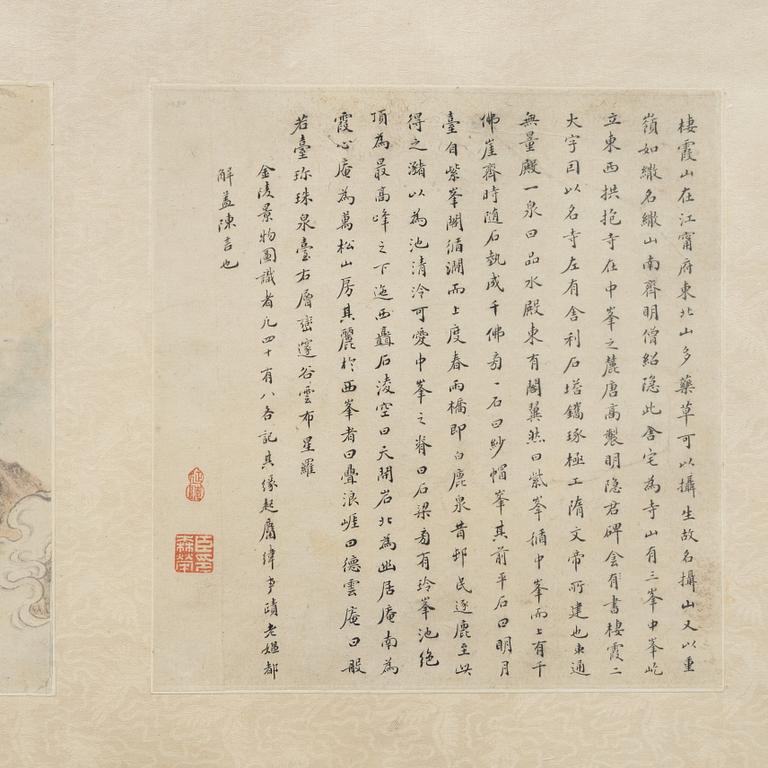 棲霞山在江甯府東北山多藥草可以攝生故名攝山又以重
嶺如繖名繖山南齊明僧紹隐此舍宅為寺山有三峯中峯屹
立東西拱抱寺在中峯之麓唐高製明隐君碑會有書棲霞二
大字因以名寺左有舍利石塔鐫琢極工隋文帝所建也東通
無量殿一泉曰品水殿東有閣翼然曰紫峯循中峯而上有千
佛崖齊時随石埶成千佛旁一石曰紗帽峯其前平石曰明月
臺自紫峯閣循澗而上度春雨橋即白鹿泉昔邨民逐鹿至此
得之瀦以為池清泠可愛中峯之脊曰石梁旁有玲峯池絶
頂為最高峰之下迤西矗石淩空曰天開岩北為幽居庵南為
霞心庵為萬松山房其麗於西峯者曰疊浪崕曰德雲庵曰般
若臺珍珠泉臺右層巒邃谷雲布星羅
金陵景物圖識者凡四十有八各記其緣起
解葢陳言也
臣